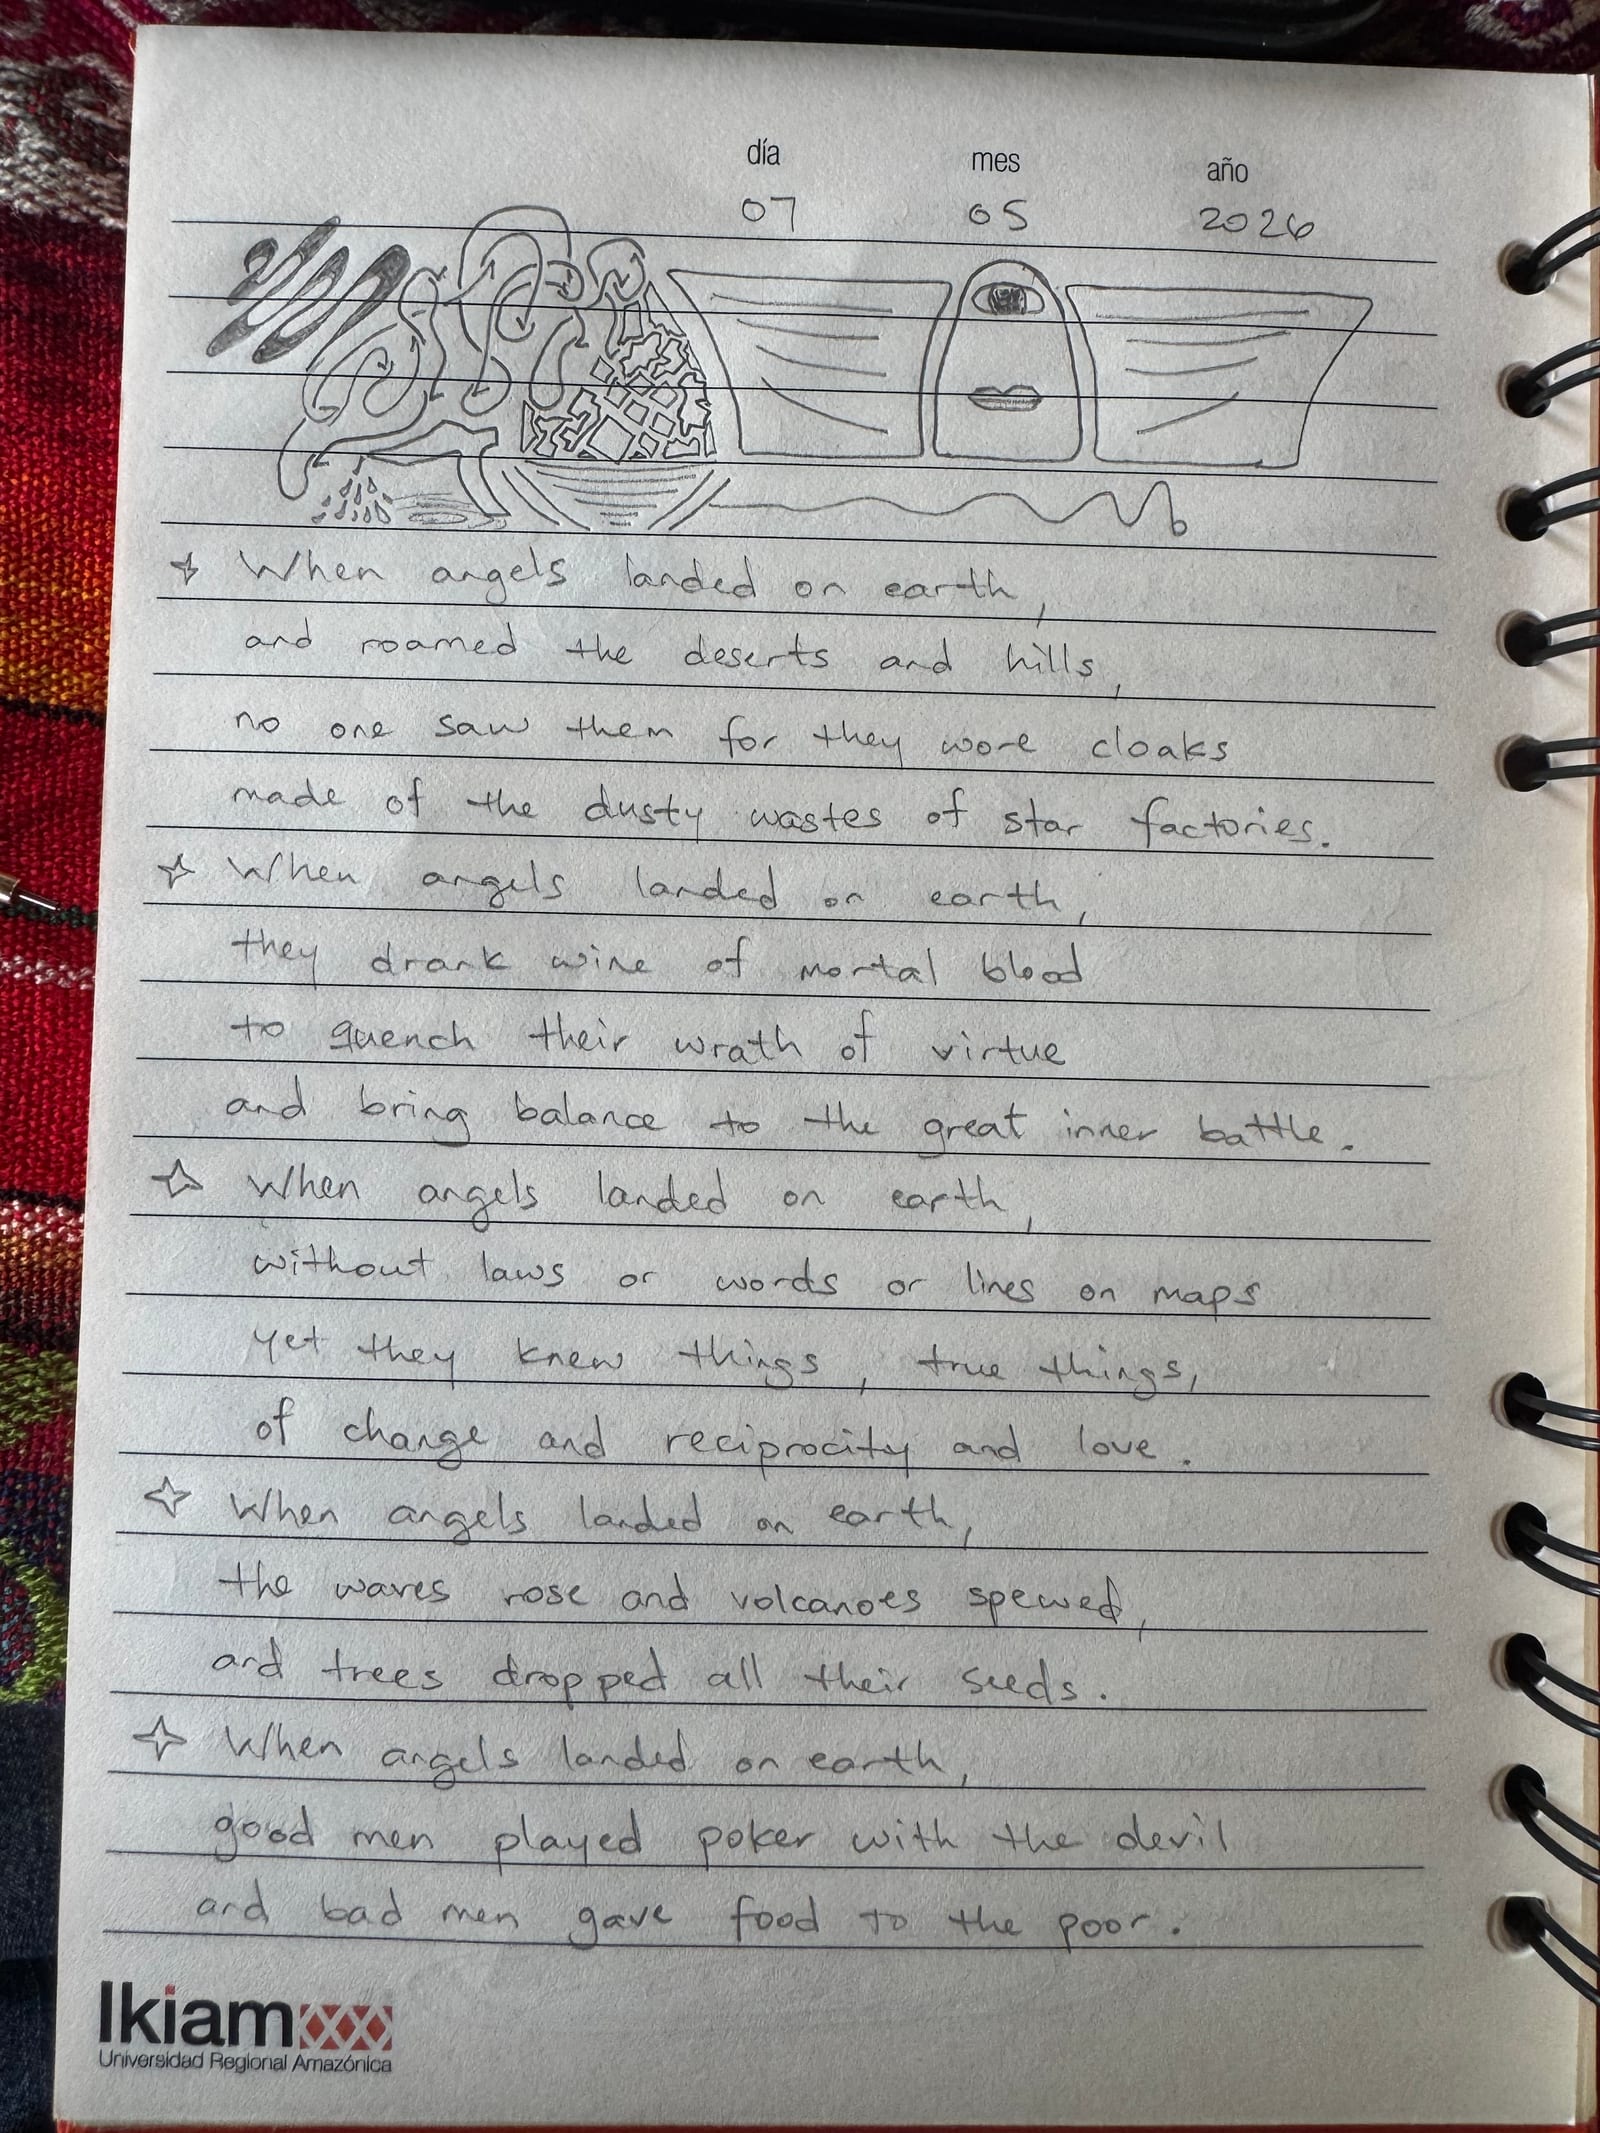 día mes año
07 05 2026
When angels landed on earth,
and roamed the deserts and hills,
no one saw them for they wore cloaks
made of the dusty wastes of star factories.
When angels landed on earth,
they drank wine of mortal blood
to quench their wrath of virtue
and bring balance to the great inner battle.
When angels landed on earth,
without laws or words or lines on maps
yet they knew things, true things,
of change and reciprocity and love.
When angels landed on earth,
the waves rose and volcanoes spewed,
and trees dropped all their seeds.
When angels landed on earth,
good men played poker with the devil
and bad men gave food to the poor.
Ikiam
Universidad Regional Amazónica